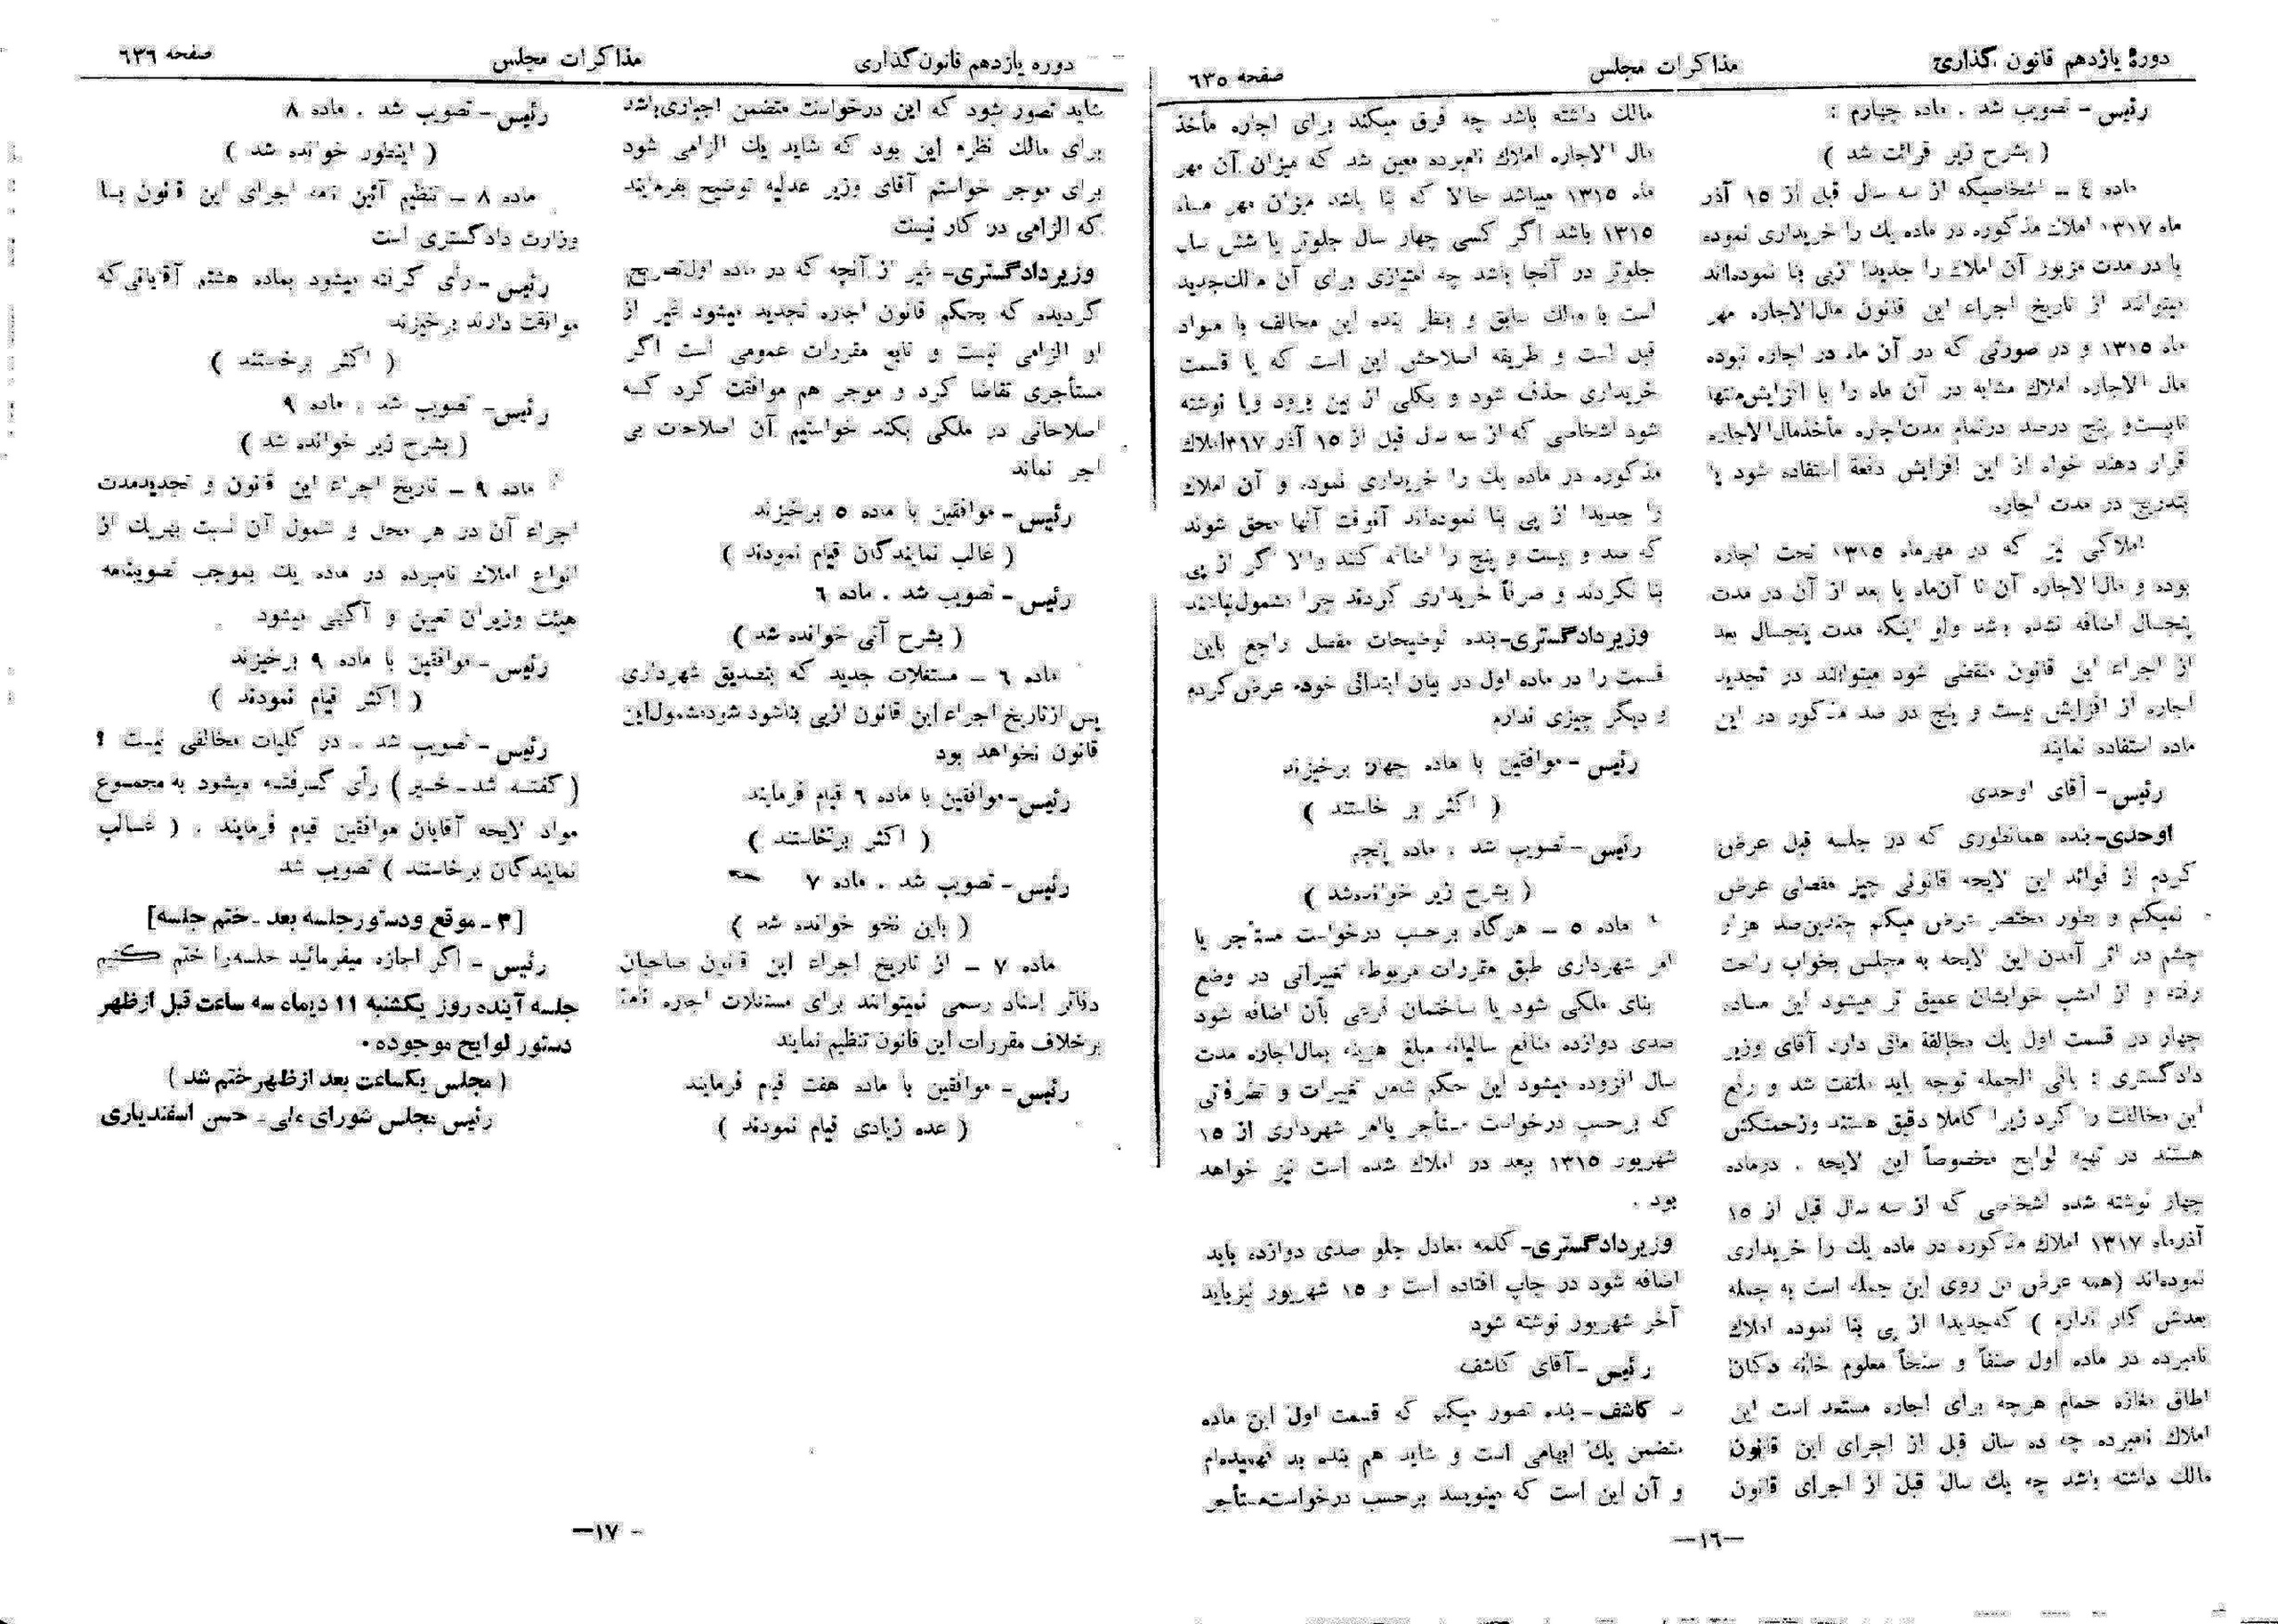 دورهٔ یازدهم قانون گذاری
مذاکرات مجلس
صفحه ٦٣٥
رئیس – تصویب شد . ماده چهارم :
( بشرح زیر قرائت شد )
ماده ٤ – اشخاصیکه از سه سال قبل از ١٥ آذر
ماه ١٣١٧ املاك مذکوره در ماده یك را خریداری نموده
یا در مدت مزبور آن املاك را جدیداً ازپی بنا نموده‌اند
میتوانند از تاریخ اجراء این قانون مال‌الاجاره مهر
ماه ١٣١٥ و در صورتی که در آن ماه در اجاره نبوده
مال الاجاره املاك مشابه در آن ماه را با افزایش‌منتها
تابیست‌و پنج درصد درتمام مدت‌اجاره مأخذمال‌الاجاره
قرار دهند خواه از این افزایش دفعة استفاده شود یا
بتدریج در مدت اجاره
املاکی نیز که در مهرماه ١٣١٥ تحت اجاره
بوده و مال‌الاجاره آن تا آن‌ماه یا بعد از آن در مدت
پنجسال اضافه نشده باشد ولو اینکه مدت پنجسال بعد
از اجراء این قانون منقضی شود میتوانند در تجدید
اجاره از افزایش بیست و پنج در صد مذکور در این
ماده استفاده نمایند
رئیس – آقای اوحدی
اوحدی – بنده همانطوری که در جلسه قبل عرض
کردم از فوائد این لایحه قانونی چیز مفصلی عرض
نمیکنم و بطور مختصر عرض میکنم چندین‌صد هزار
چشم در اثر آمدن این لایحه به مجلس بخواب راحت
رفته و از امشب خوابشان عمیق تر میشود این ماده
چهار در قسمت اول یك مخالفة مائی دارد آقای وزیر
دادگستری : باقی الجمله توجه باید ملتفت شد و رفع
این مخالفت را کرد زیرا کاملا دقیق هستند وزحمتکش
هستند در تهیه لوایح مخصوصاً این لایحه . درماده
چهار نوشته شده اشخاصی که از سه سال قبل از ١٥
آذرماه ١٣١٧ املاك مذکوره در ماده یك را خریداری
نموده‌اند (همه عرض من روی این جمله است به جمله
بعدش کار ندارم ) که‌جدیداً از پی بنا نموده املاك
نامبرده در ماده اول صنفاً و سنخاً معلوم خانه دکان
اطاق مغازه حمام هرچه برای اجاره مستعد است این
املاك نامبرده چه ده سال قبل از اجرای این قانون
مالك داشته باشد چه یك سال قبل از اجرای قانون
مالك داشته باشد چه فرق میکند برای اجاره مأخذ
مال الاجاره املاك نامبرده معین شد که میزان آن مهر
ماه ١٣١٥ میباشد حالا که بنا باشد میزان مهر ماه
١٣١٥ باشد اگر کسی چهار سال جلوتر یا شش سال
جلوتر در آنجا باشد چه امتیازی برای آن مالك‌جدید
است با مالك سابق و بنظر بنده این مخالف با مواد
قبل است و طریقه اصلاحش این است که یا قسمت
خریداری حذف شود و بکلی از بین برود ویا نوشته
شود اشخاصی که از سه سال قبل از ١٥ آذر ١٣١٧املاك
مذکوره در ماده یك را خریداری نموده و آن املاك
را جدیداً از پی بنا نموده‌اند آنوقت آنها محق شوند
که صد و بیست و پنج را اضافه کنند والا اگر از پی
بنا نکردند و صرفاً خریداری کردند چرا مشمول‌نباشند
وزیردادگستری–بنده توضیحات مفصل راجع باین
قسمت را در ماده اول در بیان ابتدائی خود عرض‌کردم
و دیگر چیزی ندارم
رئیس – موافقین با ماده چهار برخیزند
( اکثر بر خاستند )
رئیس – تصویب شد . ماده پنجم
( بشرح زیر خوانده‌شد )
ماده ٥ – هرگاه برحسب درخواست مستأجر یا
امر شهرداری طبق مقررات مربوطه تغییراتی در وضع
بنای ملکی شود یا ساختمان فرعی بآن اضافه شود
صدی دوازده منافع سالیانه مبلغ هزینه بمال‌اجازه مدت
سال افزوده میشود این حکم شامل تغییرات و تصرفاتی
که برحسب درخواست مستأجر یاامر شهرداری از ١٥
شهریور ١٣١٥ ببعد در املاك شده است نیز خواهد
بود .
وزیردادگستری– کلمه معادل جلو صدی دوازده باید
اضافه شود در چاپ افتاده است و ١٥ شهریور نیزباید
آخر شهریور نوشته شود
رئیس – آقای کاشف
کاشف – بنده تصور میکنم که قسمت اول این ماده
متضمن یك ابهامی است و شاید هم بنده بد فهمیده‌ام
و آن این است که مینویسد برحسب درخواست‌مستأجر
—١٦—
دوره یازدهم قانون‌گذاری
مذاکرات مجلس
صفحه ٦٣٦
شاید تصور شود که این درخواست متضمن اجباری‌باشد
برای مالك نظرم این بود که شاید یك الزامی شود
برای موجر خواستم آقای وزیر عدلیه توضیح بفرمایند
که الزامی در کار نیست
وزیردادگستری– غیر از آنچه که در ماده اول‌تصریح
گردیده که بحکم قانون اجاره تجدید میشود غیر از
او الزامی نیست و تابع مقررات عمومی است اگر
مستأجری تقاضا کرد و موجر هم موافقت کرد که
اصلاحاتی در ملکی بکند خواستیم آن اصلاحات بی
اجر نماند
رئیس – موافقین با ماده ٥ برخیزند
( غالب نمایندگان قیام نمودند )
رئیس – تصویب شد . ماده ٦
( بشرح آتی خوانده شد )
ماده ٦ – مستغلات جدید که بتصدیق شهرداری
پس ازتاریخ اجراء این قانون ازپی بناشود شودمشمول‌این
قانون نخواهد بود
رئیس–موافقین با ماده ٦ قیام فرمایند
( اکثر برخاستند )
رئیس – تصویب شد . ماده ٧
( باین نحو خوانده شد )
ماده ٧ – از تاریخ اجراء این قانون صاحبان
دفاتر اسناد رسمی نمیتوانند برای مستغلات اجاره نامه
برخلاف مقررات این قانون تنظیم نمایند
رئیس – موافقین با ماده هفت قیام فرمایند
( عده زیادی قیام نمودند )
رئیس – تصویب شد . ماده ٨
( اینطور خوانده شد )
ماده ٨ – تنظیم آئین نامه اجرای این قانون با
وزارت دادگستری است
رئیس – رأی گرفته میشود بماده هشتم آقایانی‌که
موافقت دارند برخیزند
( اکثر برخاستند )
رئیس – تصویب شد . ماده ٩
( بشرح زیر خوانده شد )
ماده ٩ – تاریخ اجراء این قانون و تجدیدمدت
اجراء آن در هر محل و شمول آن نسبت بهریك از
انواع املاك نامبرده در ماده یك بموجب تصویبنامه
هیئت وزیران تعیین و آگهی میشود
رئیس – موافقین با ماده ٩ برخیزند
( اکثر قیام نمودند )
رئیس – تصویب شد . در کلیات مخالفی نیست ؟
( گفته شد – خیر ) رأی گرفته میشود به مجموع
مواد لایحه آقایان موافقین قیام فرمایند . ( غالب
نمایندگان برخاستند ) تصویب شد
[ ٣ – موقع ودستورجلسه بعد – ختم جلسه]
رئیس – اگر اجازه میفرمائید جلسه‌را ختم کنیم
جلسه آینده روز یکشنبه ١١ دیماه سه ساعت قبل ازظهر
دستور لوایح موجوده .
( مجلس یکساعت بعد ازظهر ختم شد )
رئیس مجلس شورای ملی – حسن اسفندیاری
– ١٧—